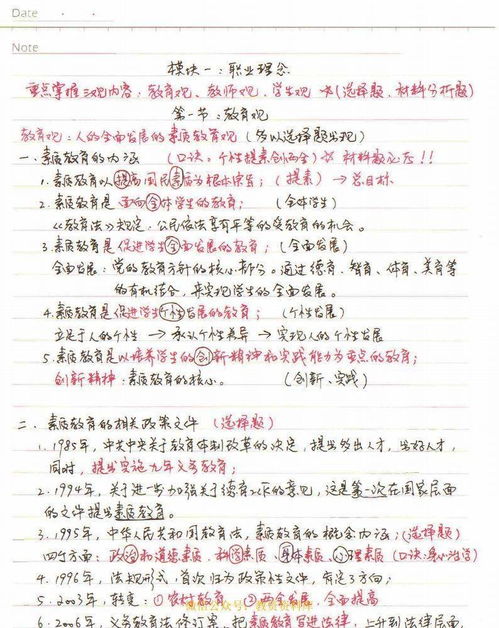 Date
Note
模块一：职业理念
重点掌握三观内容：教育观、教师观、学生观 ☆(选择题、材料分析题)
第一节：教育观
教育观：人的全面发展的素质教育观 (多以选择题出现)
一、素质教育的内涵 (口诀：个性提素创两全) ☆ 材料题必背！！
1.素质教育以提高国民素质为根本宗旨；(提素) → 总目标
2.素质教育是面向全体学生的教育； (全体学生)
《教育法》规定，公民依法享有平等的受教育的机会。
3.素质教育是促进学生全面发展的教育；(全面发展)
全面发展：党的教育方针的核心部分。通过德育、智育、体育、美育等
的有机结合，来实现学生的全面发展。
4.素质教育是促进学生个性发展的教育； (个性发展)
立足于人的个性 → 承认个性差异 → 实现人的个性发展
5.素质教育是以培养学生的创新精神和实践能力为重点的教育；
创新精神：素质教育的核心。 (创新、实践)
二、素质教育的相关政策文件 (选择题)
1.1985年，中共中央关于教育体制改革的决定，提出多出人才，出好人才，
同时，提出实施九年义务教育；
2.1994年，关于进一步加强关于德育工作的意见，这是第一次在国家层面
的文件提出素质教育。
3.1995年，中华人民共和国教育法，素质教育的概念内涵；(选择题)
四个方面：政治和道德素质、科学素质、身体素质、心理素质 (口诀：身心治学)
4.1996年，法规形式，首次归为政策性文件，有这3方向；
5.2003年，转变：①农村教育 ②两全发展，全面提高
微信公众号：教资资料库
6.2006年，义务教育法修订案，把素质教育写进法律，上升到法律层面，